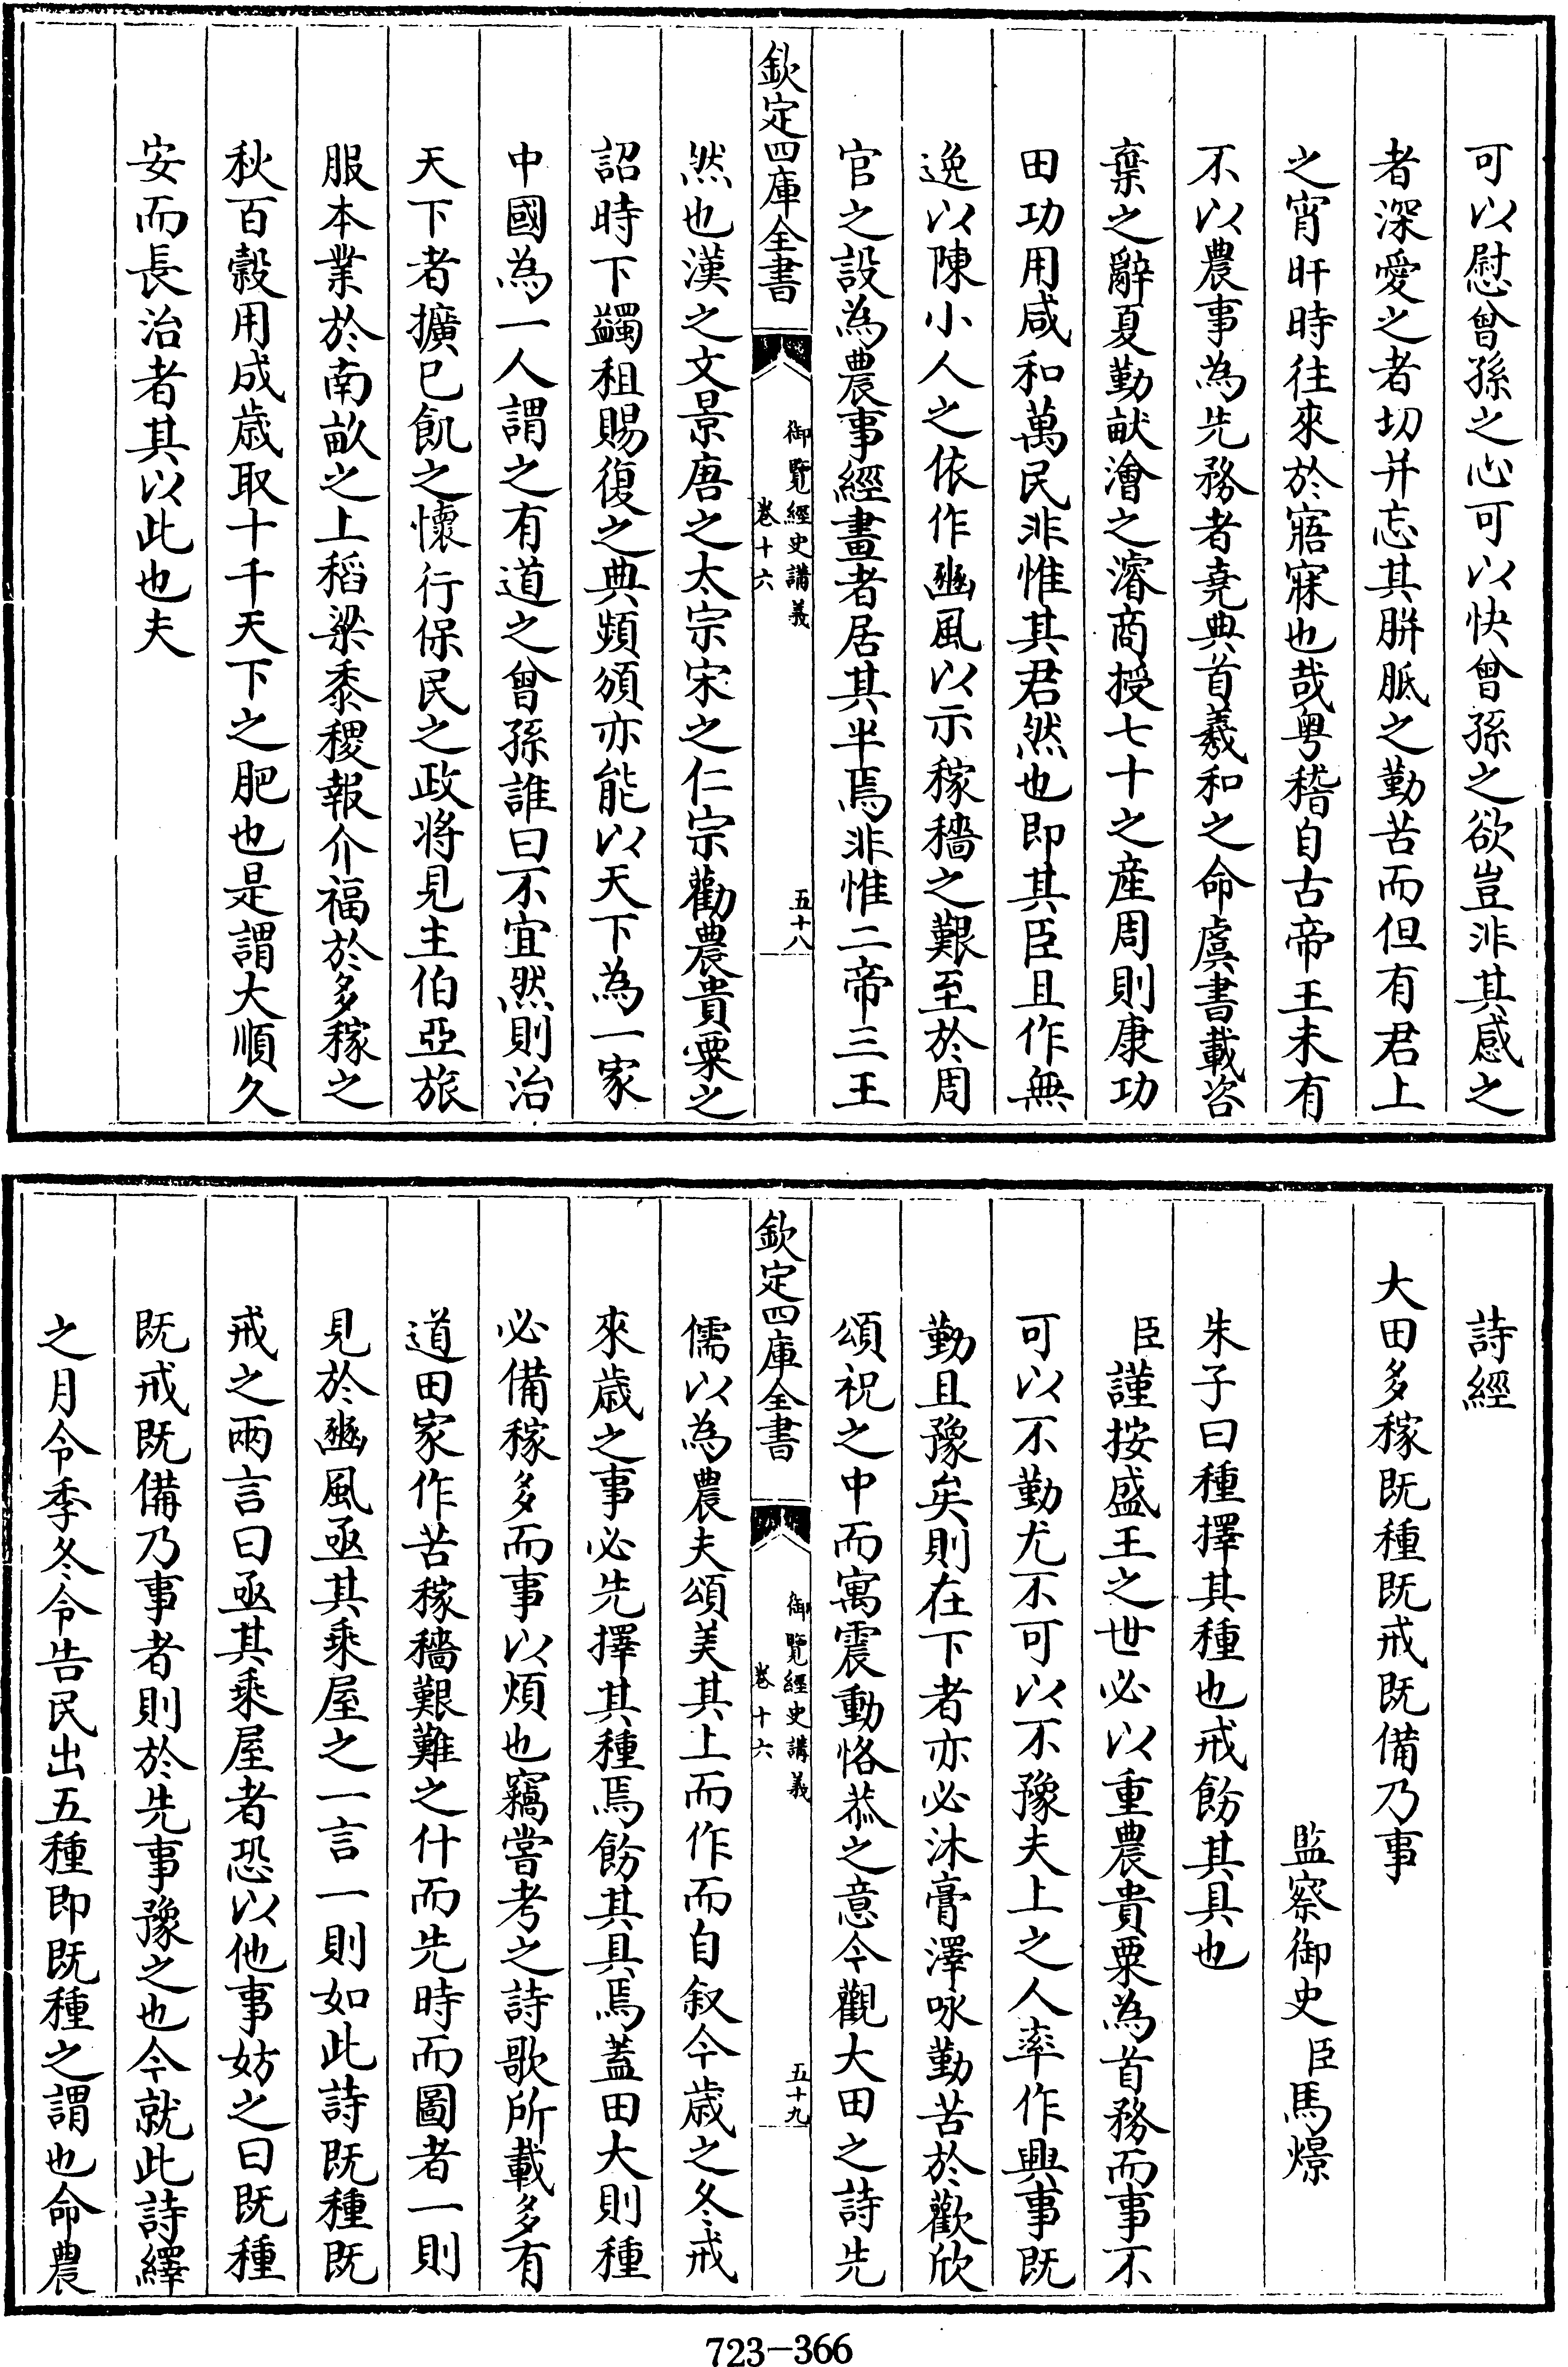 可以慰曾孫之心可以快曾孫之欲豈非其感之
者深愛之者切并忘其胼胝之勤苦而但有君上
之宵旰時往來於寤寐也哉粤稽自古帝王未有
不以農事為先務者堯典首羲和之命虞書載咨
棄之辭夏勤畎澮之濬商授七十之産周則康功
田功用咸和萬民非惟其君然也即其臣且作無
逸以陳小人之依作豳風以示稼穡之艱至於周
官之設為農事經畫者居其半焉非惟二帝三王
欽定四庫全書
御覽經史講義
卷十六
五十八
然也漢之文景唐之太宗宋之仁宗勸農貴粟之
詔時下蠲租賜復之典頻頒亦能以天下為一家
中國為一人謂之有道之曾孫誰曰不宜然則治
天下者擴已飢之懷行保民之政將見主伯亞旅
服本業於南畝之上稻粱黍稷報介福於多稼之
秋百穀用成歳取十千天下之肥也是謂大順久
安而長治者其以此也夫
詩經
大田多稼既種既戒既備乃事
監察御史臣馬燝
朱子曰種擇其種也戒飭其具也
臣謹按盛王之世必以重農貴粟為首務而事不
可以不勤尤不可以不豫夫上之人率作興事既
勤且豫矣則在下者亦必沐膏澤咏勤苦於歡欣
頌祝之中而寓震動恪恭之意今觀大田之詩先
欽定四庫全書
御覽經史講義
卷十六
五十九
儒以為農夫頌美其上而作而自叙今歳之冬戒
來歳之事必先擇其種焉飭其具焉蓋田大則種
必備稼多而事以煩也竊嘗考之詩歌所載多有
道田家作苦稼穡艱難之什而先時而圖者一則
見於豳風亟其乘屋之一言一則如此詩既種既
戒之兩言曰亟其乘屋者恐以他事妨之曰既種
既戒既備乃事者則於先事豫之也今就此詩繹
之月令季冬令告民出五種即既種之謂也命農
723-366